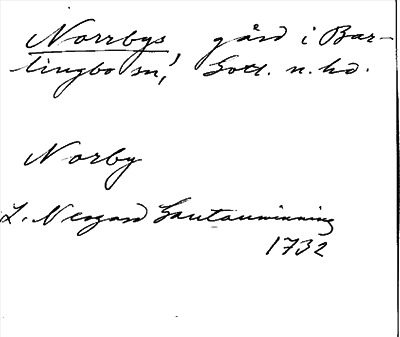 Norrbys, gård i Bar-
lingbo sn, Gotl. n. hd.
Norby
L. Nergard
1732